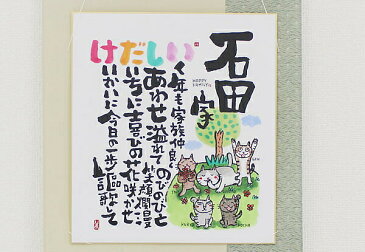 石田家
HAPPY FAMILY!!
いく年も家族仲良く
しあわせ溢れてのびのびと
笑顔爛漫に
だいちに喜びの花咲かせ
けいかいに今日の一歩